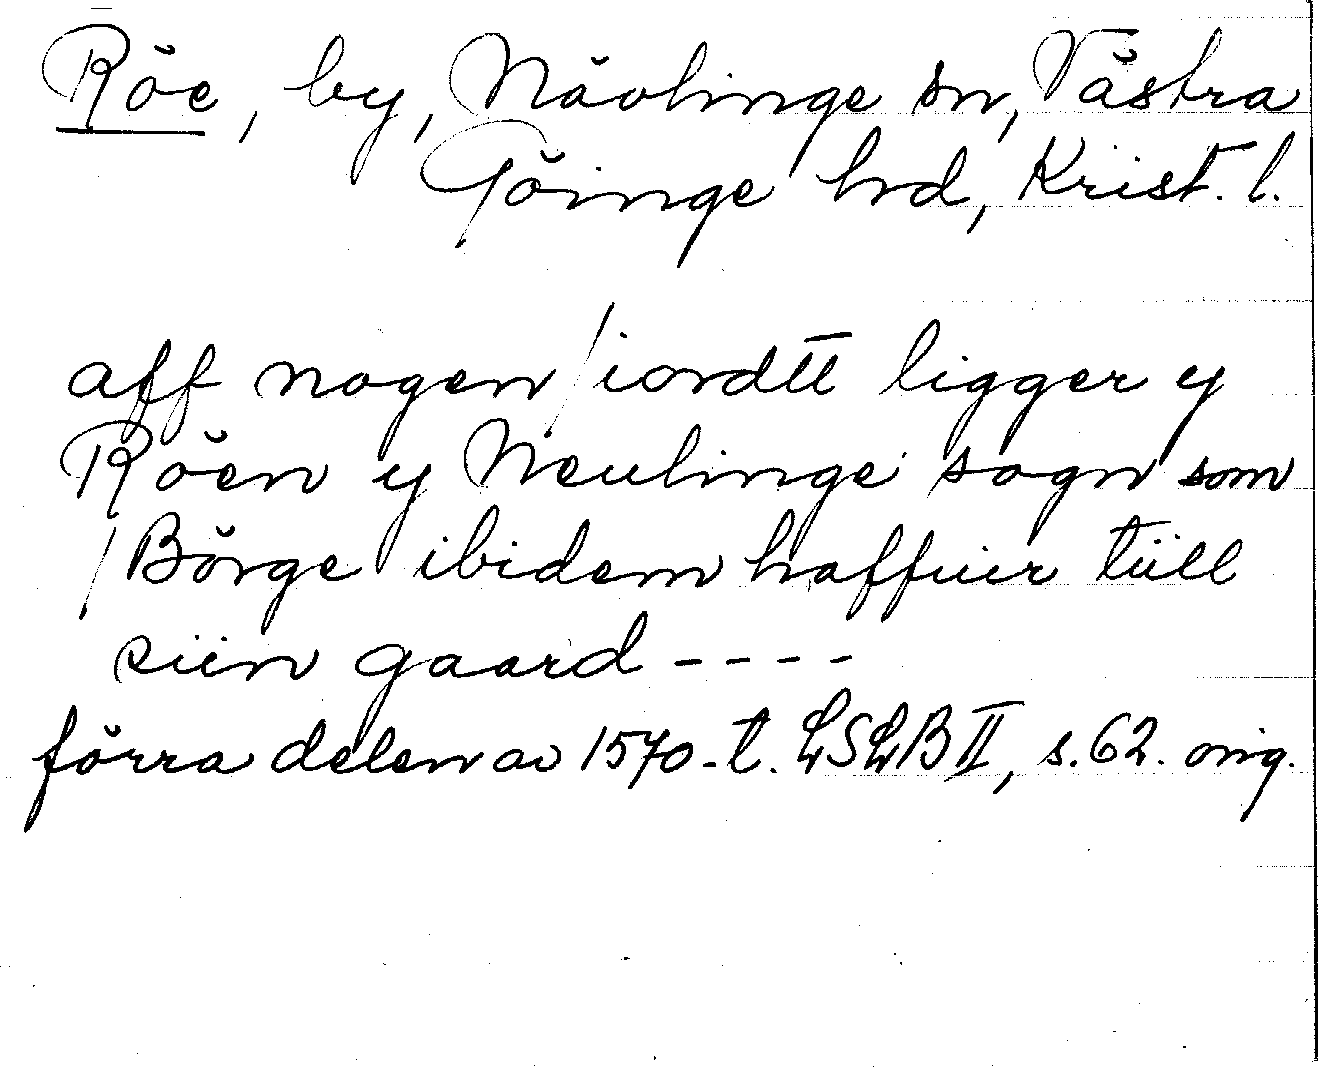 Röe, by, Nävlinge sn, Västra
Göinge hrd, Krist. l.
aff nogen / iordtt ligger y
Röen y Neulinge sogn som
/ Börge ibidem haffuer tiill
siin gaard ----
förra delen av 1570-t. LSLB II, s. 62. orig.